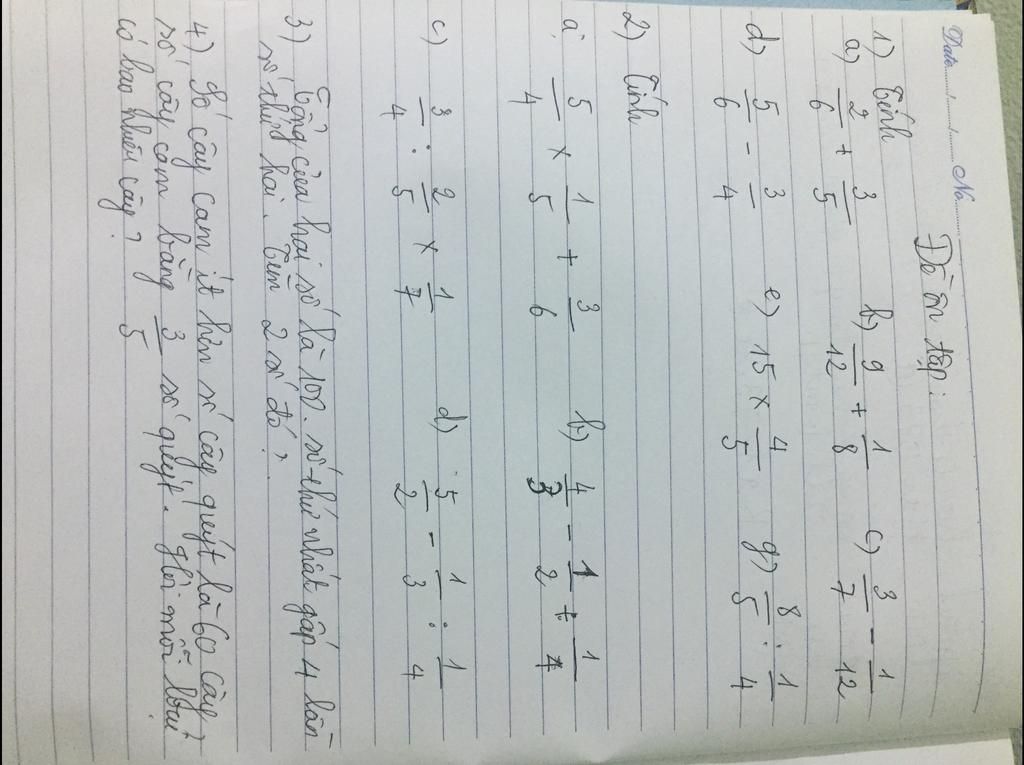 Date....../....../...... No..........
Đề ôn tập:
1) Tính
a) 2/6 + 3/5 b) 9/12 + 1/8 c) 3/7 - 1/12
d) 5/6 - 3/4 e) 15 × 4/5 g) 8/5 : 1/4
2) Tính
a, 5/4 × 1/5 + 3/6 b) 4/3 - 1/2 + 1/4
c) 3/4 : 2/5 × 1/7 d) 5/2 - 1/3 : 1/4
3) Tổng của hai số là 100. số thứ nhất gấp 4 lần
số thứ hai. Tìm 2 số đó?
4) Số cây cam ít hơn số cây quýt là 60 cây?
số cây cam bằng 3/5 số quýt. ghỏi mỗi loại
có bao nhiêu cây?